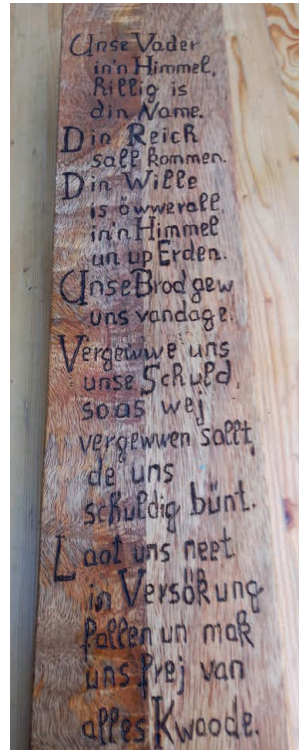 Unse Vader
in'n Himmel,
hillig is
din Name.
Din Reich
sall kommen.
Din Wille
is öwwerall
in'n Himmel
un up Erden.
Unse Brod gew
uns vandage.
Vergewwe uns
unse Schuld,
so as wej
vergewwen sallt,
de uns
schuldig bünt.
Laat uns neet
in Versökung
fallen un mak
uns frej van
alles Kwaode.